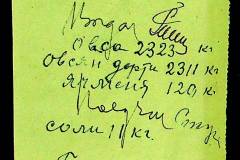 Выдал
Овса 2323 кг
Овсян дерти 2311 кг
Ячменя 120 кг
Получил
соли 11 кг.